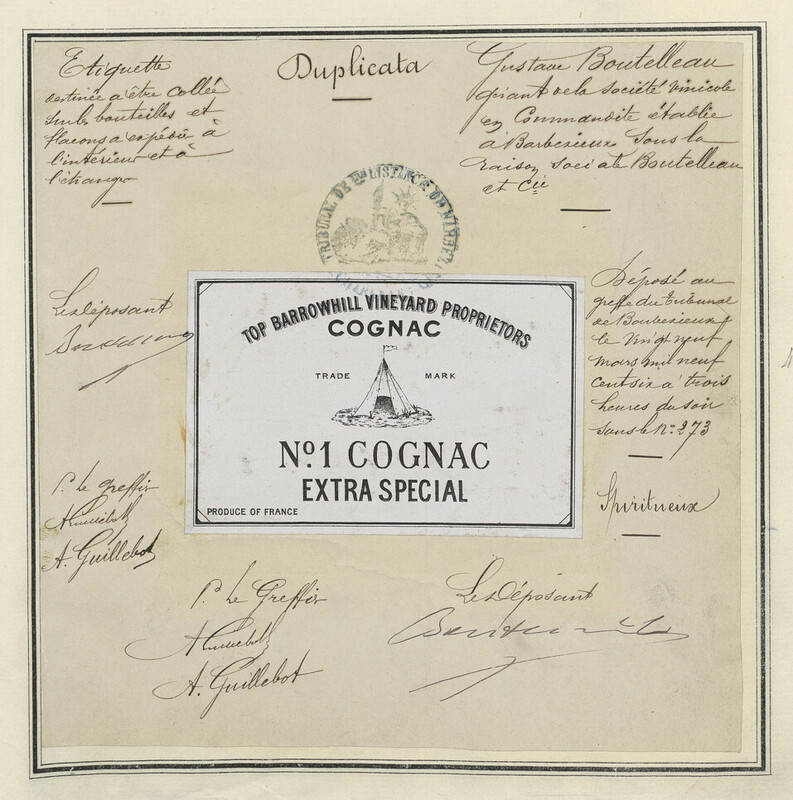 Duplicata
Etiquette
destinée a être collée
sur les bouteilles et
flacons a expédier à
l'intérieur et à
l'étranger
Gustave Boutelleau
gérant de la société vinicole
en Commandite établie
à Barbezieux sous la
raison sociale Boutelleau
et Cie
TRIBUNAL DE 1ère INSTANCE DE BARBEZIEUX
Les déposant
Déposé au
greffe du tribunal
de Barbezieux
le vingt neuf
mars mil neuf
cent six à trois
heures du soir
sous le No 273
TOP BARROWHILL VINEYARD PROPRIETORS
COGNAC
TRADE MARK
No. 1 COGNAC
EXTRA SPECIAL
PRODUCE OF FRANCE
P. le greffier
A. Guillebot
Spiritueux
P. Le Greffier
A. Guillebot
Les Déposant